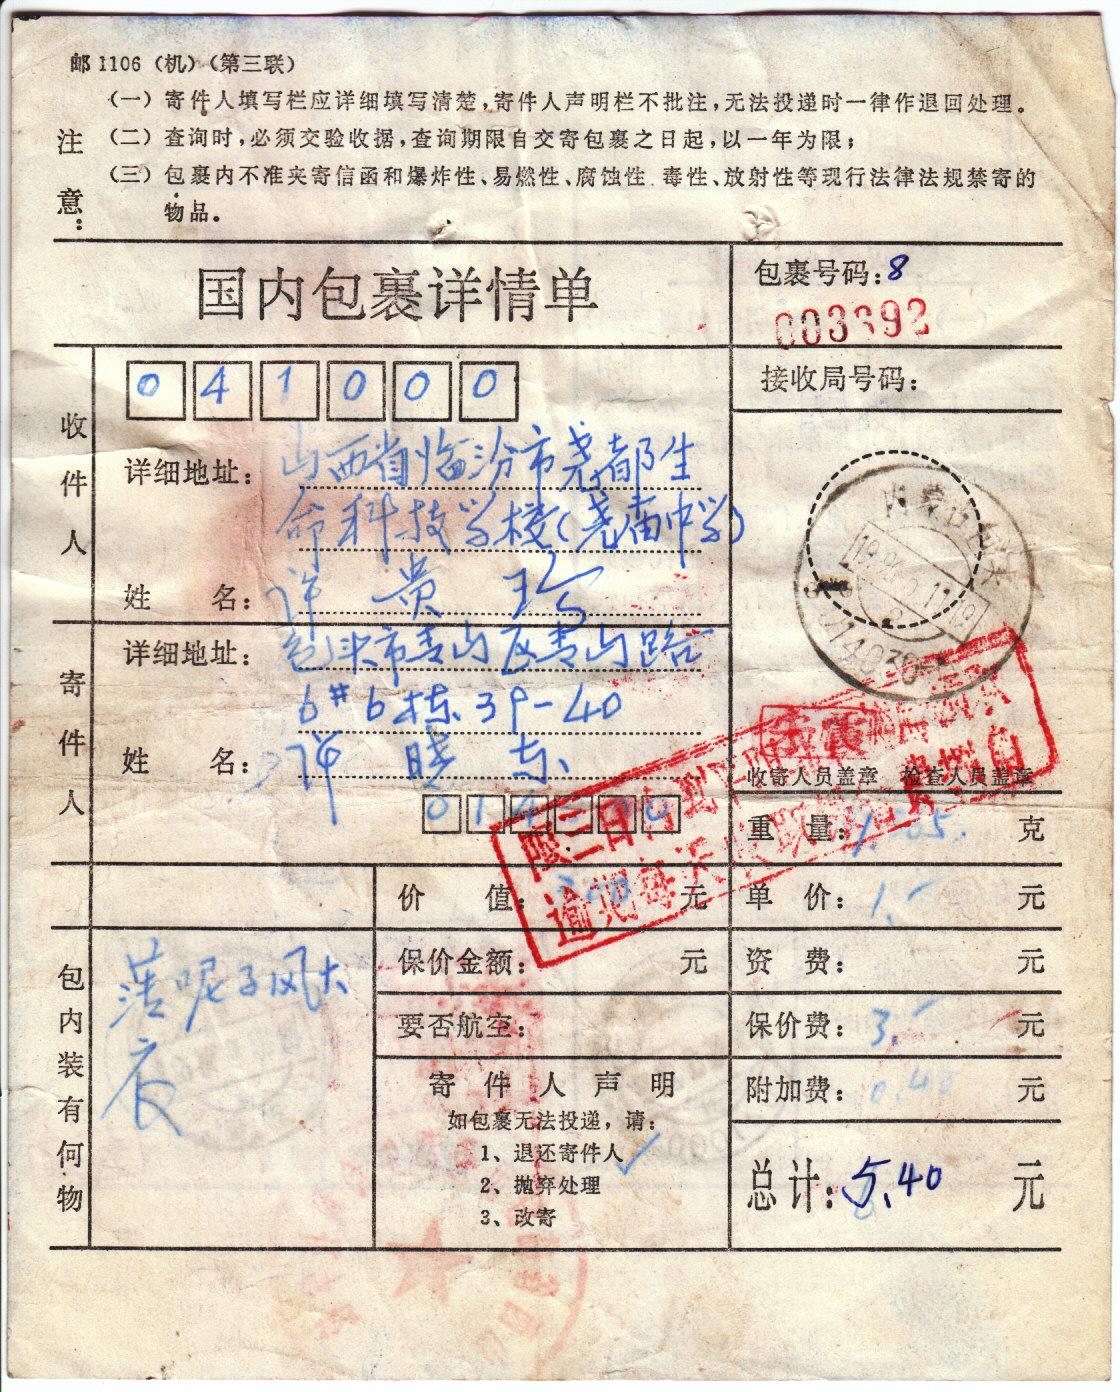 邮1106（机）（第三联）
注意：
（一）寄件人填写栏应详细填写清楚，寄件人声明栏不批注，无法投递时一律作退回处理。
（二）查询时，必须交验收据，查询期限自交寄包裹之日起，以一年为限；
（三）包裹内不准夹寄信函和爆炸性、易燃性、腐蚀性、毒性、放射性等现行法律法规禁寄的
物品。
国内包裹详情单
包裹号码：8
003692
接收局号码：
收件人
041000
详细地址：山西省临汾市尧都生
命科技学校（尧庙中学）
姓 名：许贵珍
寄件人
详细地址：包头市青山区青山路
6#6栋39-40
姓 名：许晓东
内蒙古包头
收寄人员盖章 检查人员盖章
限三日内
逾期每天
重 量： 克
价 值： 元
单 价：1.- 元
包内装有何物
薄呢子风大
衣
保价金额： 元
资 费： 元
要否航空：
保价费：3.- 元
寄件人声明
如包裹无法投递，请：
1、退还寄件人 ✓
2、抛弃处理
3、改寄
附加费：0.4 元
总计：5.40 元